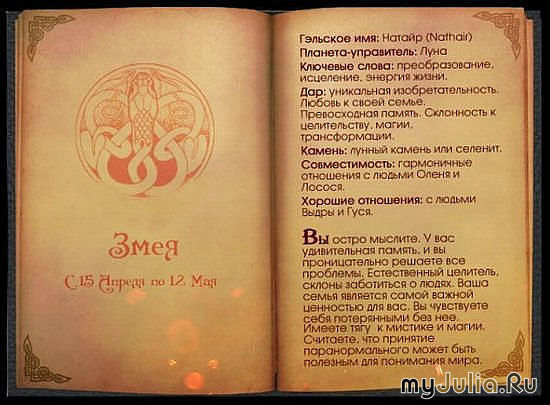 Змея
С 15 Апреля по 12 Мая
Гэльское имя: Натайр (Nathair)
Планета-управитель: Луна
Ключевые слова: преобразование,
исцеление, энергия жизни.
Дар: уникальная изобретательность.
Любовь к своей семье.
Превосходная память. Склонность к
целительству, магии,
трансформации.
Камень: лунный камень или селенит.
Совместимость: гармоничные
отношения с людьми Оленя и
Лосося.
Хорошие отношения: с людьми
Выдры и Гуся.
Вы остро мыслите. У вас
удивительная память, и вы
проницательно решаете все
проблемы. Естественный целитель,
склоны заботиться о людях. Ваша
семья является самой важной
ценностью для вас. Вы чувствуете
себя потерянными без нее.
Имеете тягу к мистике и магии.
Считаете, что принятие
паранормального может быть
полезным для понимания мира.
myJulia.Ru